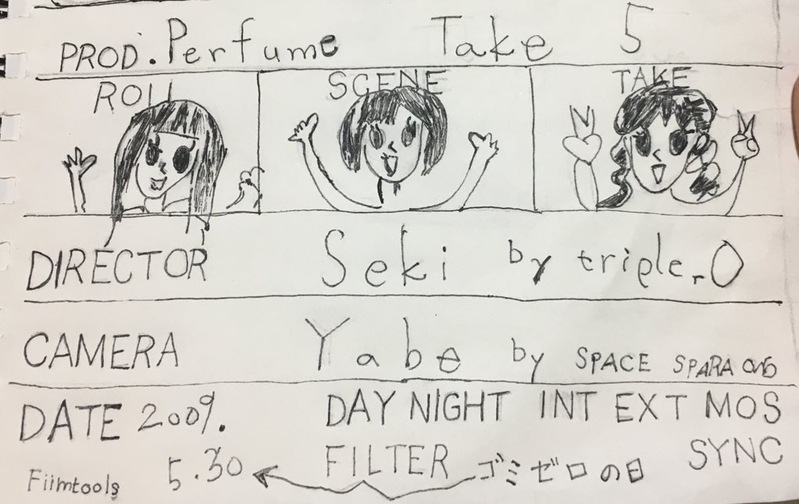 PROD. Perfume Take 5
ROLL SCENE TAKE
DIRECTOR Seki by triple.O
CAMERA Yabe by SPACE SPARA
DATE 2009. DAY NIGHT INT EXT MOS
5.30 FILTER ゴミゼロの日 SYNC
Fiimtools